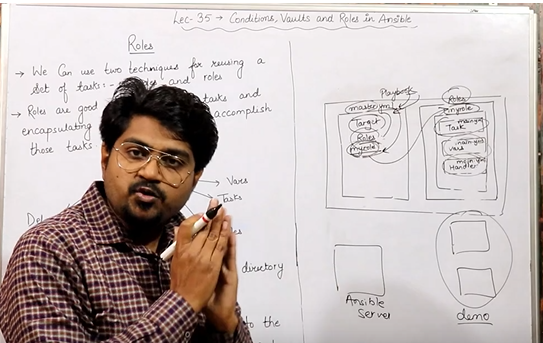 Lec-35 → Conditions, Vaults and Roles in Ansible
Roles
→ We Can use two techniques for reusing a
set of tasks:- and roles
→ Roles are good tasks and
encapsulating accomplish
those tasks
Vars
Tasks
directory
to the
Playbook
master.yml
Target
Roles
myrole
Roles
myrole
Task
vars
Handler
Ansible
Server
demo